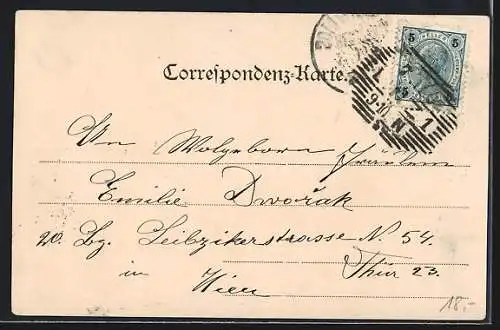 5 5
Correspondenz-Karte.
9-10 N
1
An Wolgeborn Fräulein
Emilie Dvořak
20. Bz. Leibzikerstrasse No 54.
in Thür 23.
Wien
18.-